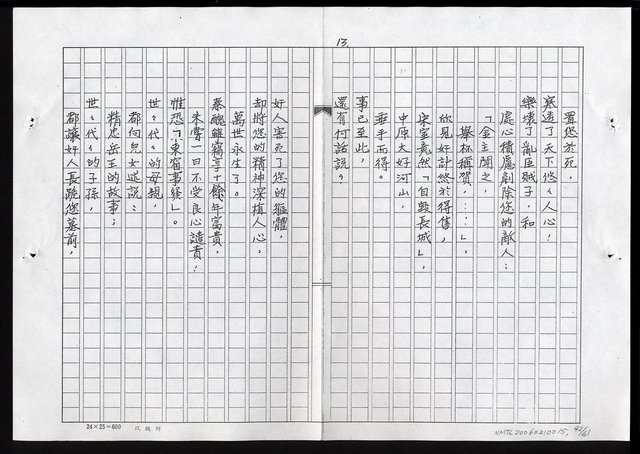 13.
置您於死，
寒透了天下悠々人心！
樂壞了亂臣賊子，和
處心積慮剷除您的敵人：
「金主聞之，
舉杯稱賀．．．．」，
欣見奸計終於得售，
宋室竟然「自毀長城」，
中原大好河山，
垂手而得。
事已至此，
還有何話說？
奸人害死了您的軀體，
却將您的精神深植人心，
萬世永生了。
秦醜雖竊享十餘年富貴，
未嘗一日不受良心譴責！
惟恐「東窗事發」。
世々代々的母親，
都向兒女述說：
精忠岳王的故事；
世々代々的子孫，
都讓奸人長跪您墓前，
24×25=600
NMTL20060210015, 42/61